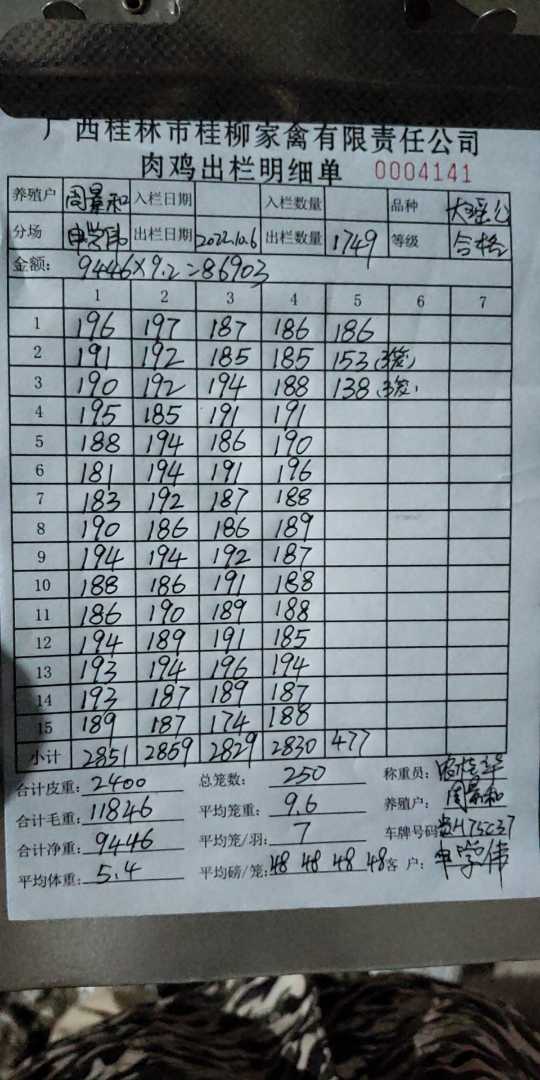 广西桂林市桂柳家禽有限责任公司
肉鸡出栏明细单 0004141
养殖户 周景和 入栏日期 入栏数量 品种
分场 申学伟 出栏日期 2022.10.6 出栏数量 1749 等级 合格
金额: 9446×9.2=86903
1 2 3 4 5 6 7
1 196 197 187 186 186
2 191 192 185 185 153
3 190 192 194 188 138
4 195 185 191 191
5 188 194 186 190
6 181 194 191 196
7 183 192 187 188
8 190 186 186 189
9 194 194 192 187
10 188 186 191 188
11 186 190 189 188
12 194 189 191 185
13 193 194 196 194
14 193 187 189 187
15 189 187 174 188
小计 2851 2859 2829 2830 477
合计皮重: 2400 总笼数: 250 称重员:
合计毛重: 11846 平均笼重: 9.6 养殖户: 周景和
合计净重: 9446 平均笼/羽: 7 车牌号码
平均体重: 5.4 平均磅/笼: 48 48 48 48 客 户: 申学伟